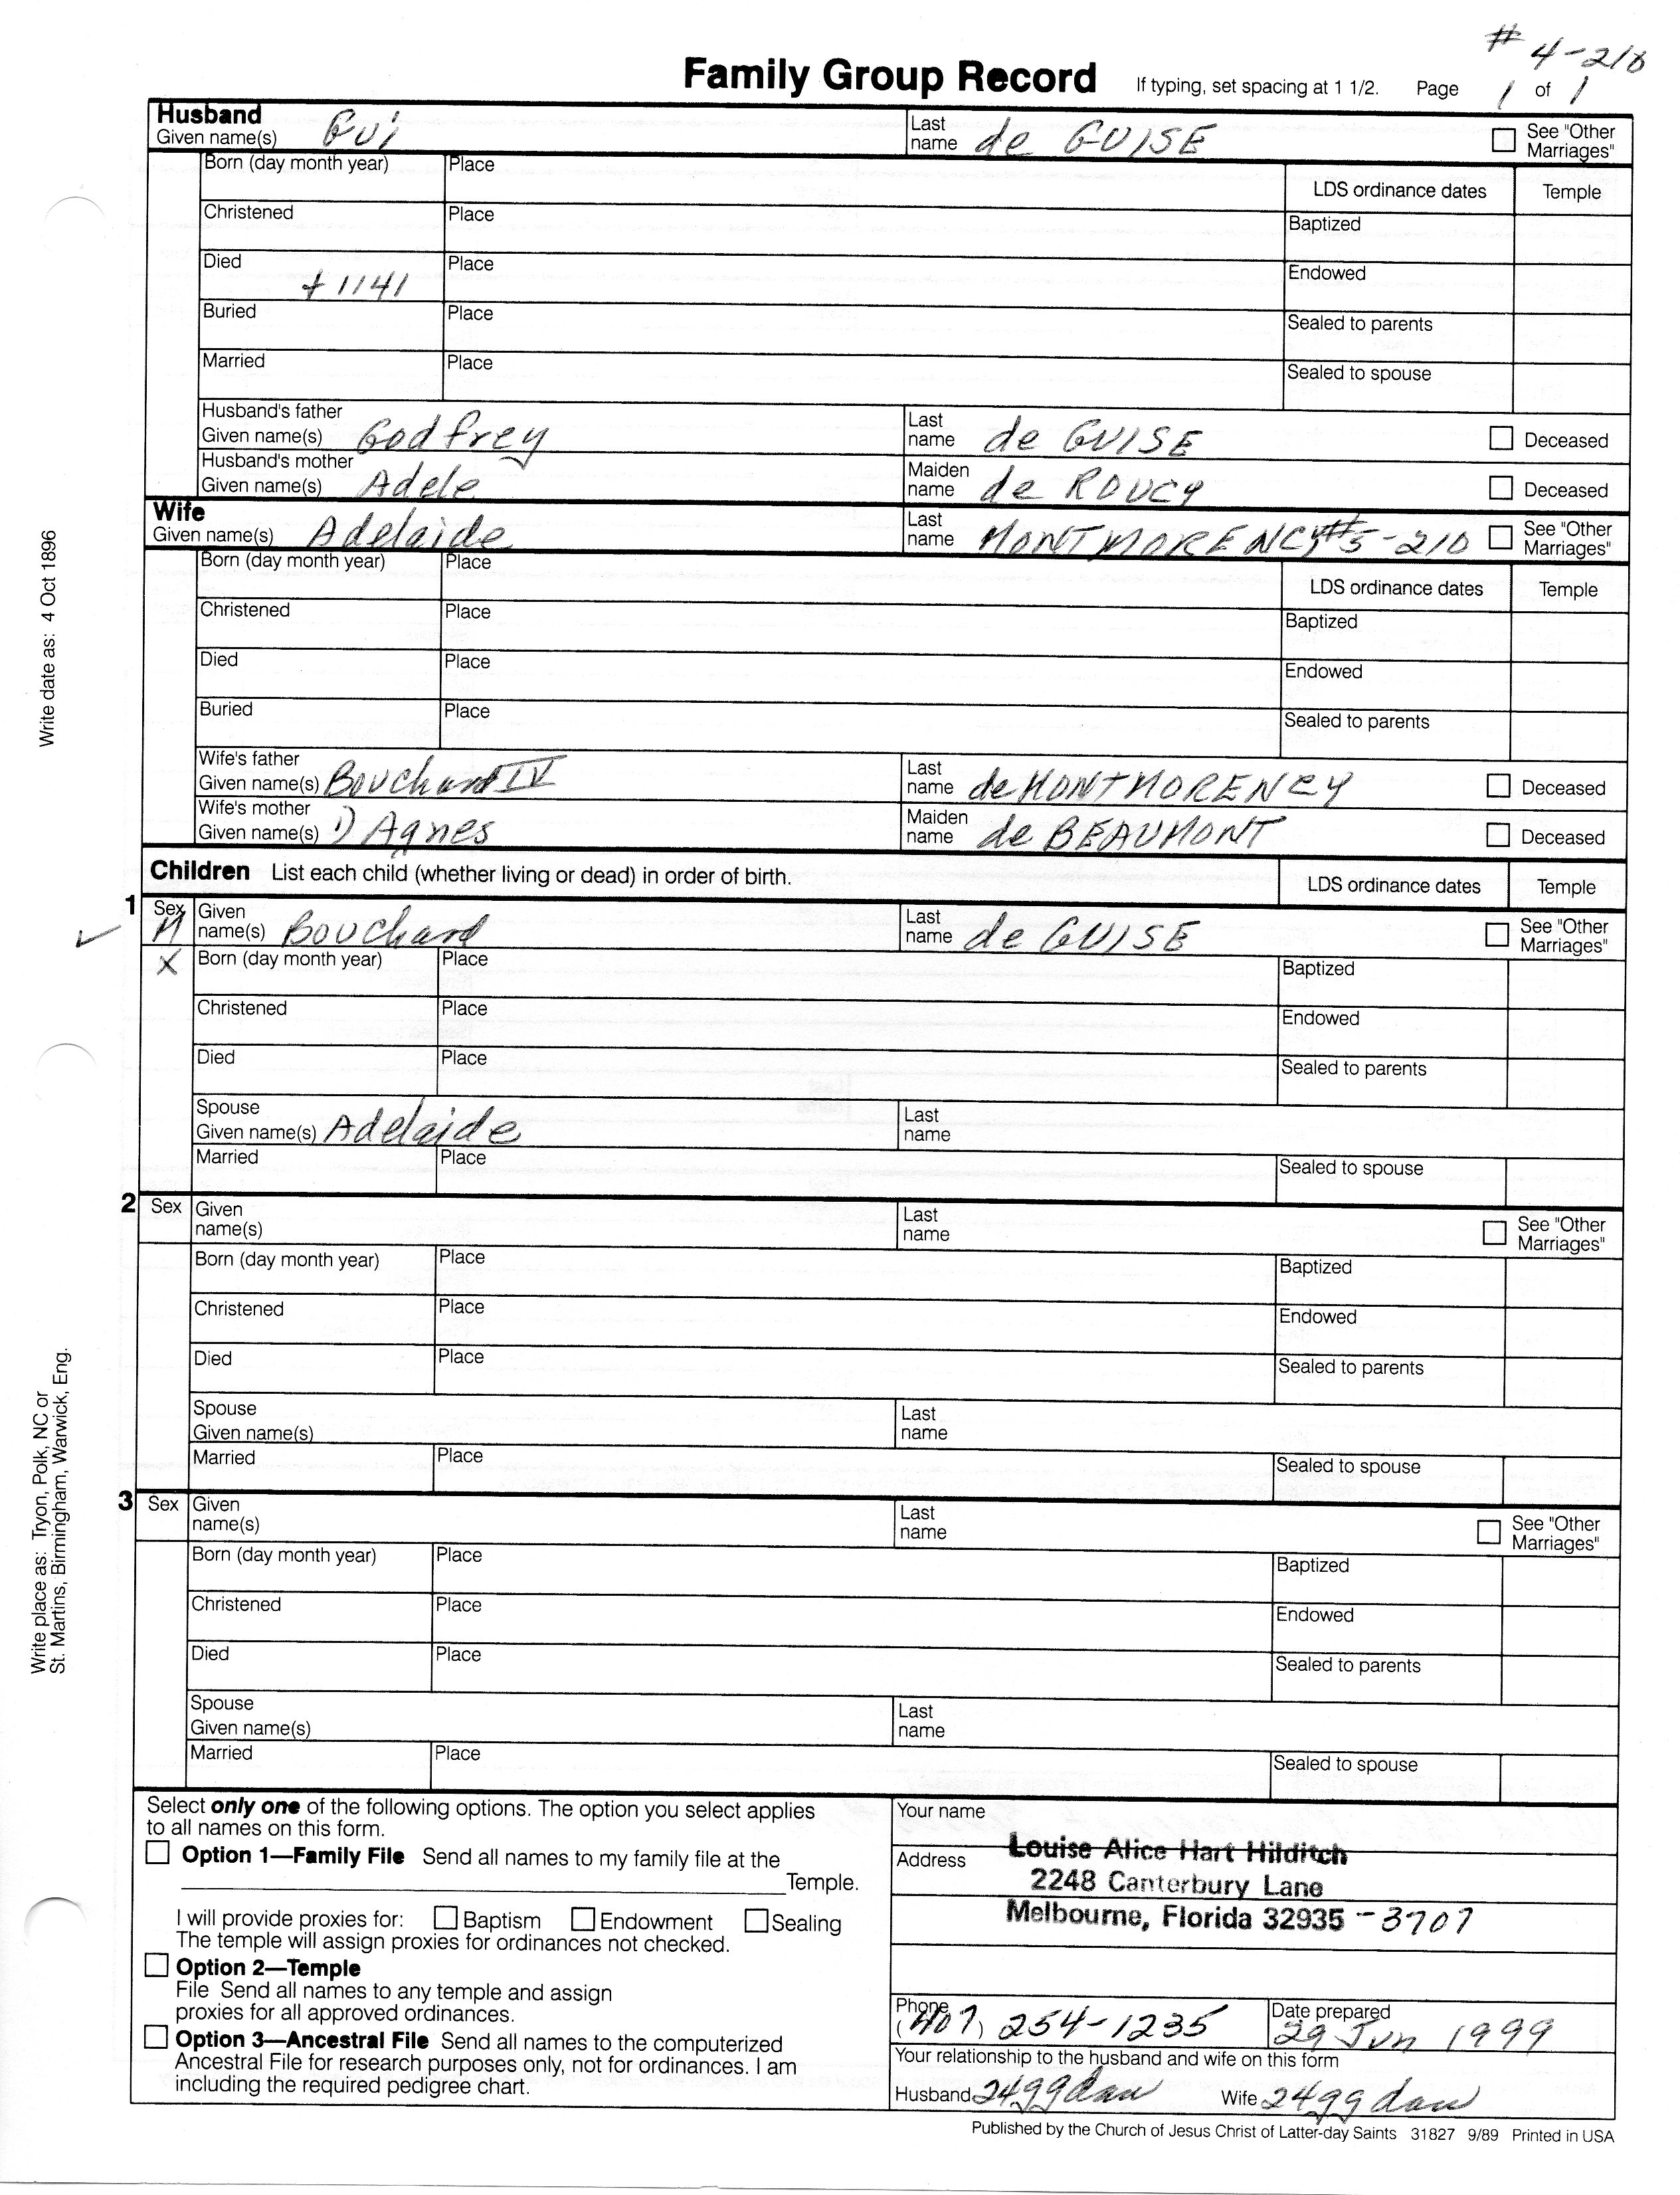 # 4-210
Family Group Record If typing, set spacing at 1 1/2. Page 1 of 1
Husband
Given name(s) Gui Last name de GUISE See "Other Marriages"
Born (day month year) Place LDS ordinance dates Temple
Christened Place Baptized
Died +1141 Place Endowed
Buried Place Sealed to parents
Married Place Sealed to spouse
Husband's father
Given name(s) Godfrey Last name de GUISE Deceased
Husband's mother
Given name(s) Adele Maiden name de ROUCY Deceased
Wife
Given name(s) Adelaide Last name MONTMORENCY #5-210 See "Other Marriages"
Born (day month year) Place LDS ordinance dates Temple
Christened Place Baptized
Died Place Endowed
Buried Place Sealed to parents
Wife's father
Given name(s) Bouchard IV Last name de MONTMORENCY Deceased
Wife's mother
Given name(s) 1) Agnes Maiden name de BEAUMONT Deceased
Children List each child (whether living or dead) in order of birth. LDS ordinance dates Temple
1 Sex M Given name(s) Bouchard Last name de GUISE See "Other Marriages"
X Born (day month year) Place Baptized
Christened Place Endowed
Died Place Sealed to parents
Spouse
Given name(s) Adelaide Last name
Married Place Sealed to spouse
2 Sex Given name(s) Last name See "Other Marriages"
Born (day month year) Place Baptized
Christened Place Endowed
Died Place Sealed to parents
Spouse
Given name(s) Last name
Married Place Sealed to spouse
3 Sex Given name(s) Last name See "Other Marriages"
Born (day month year) Place Baptized
Christened Place Endowed
Died Place Sealed to parents
Spouse
Given name(s) Last name
Married Place Sealed to spouse
Select only one of the following options. The option you select applies
to all names on this form.
Option 1—Family File Send all names to my family file at the
Temple.
I will provide proxies for: Baptism Endowment Sealing
The temple will assign proxies for ordinances not checked.
Option 2—Temple
File Send all names to any temple and assign
proxies for all approved ordinances.
Option 3—Ancestral File Send all names to the computerized
Ancestral File for research purposes only, not for ordinances. I am
including the required pedigree chart.
Your name
Louise Alice Hart Hilditch
Address
2248 Canterbury Lane
Melbourne, Florida 32935 -3707
Phone (407) 254-1235 Date prepared 29 Jun 1999
Your relationship to the husband and wife on this form
Husband 24ggdau Wife 24gg dau
Published by the Church of Jesus Christ of Latter-day Saints 31827 9/89 Printed in USA
Write date as: 4 Oct 1896
Write place as: Tryon, Polk, NC or
St. Martins, Birmingham, Warwick, Eng.